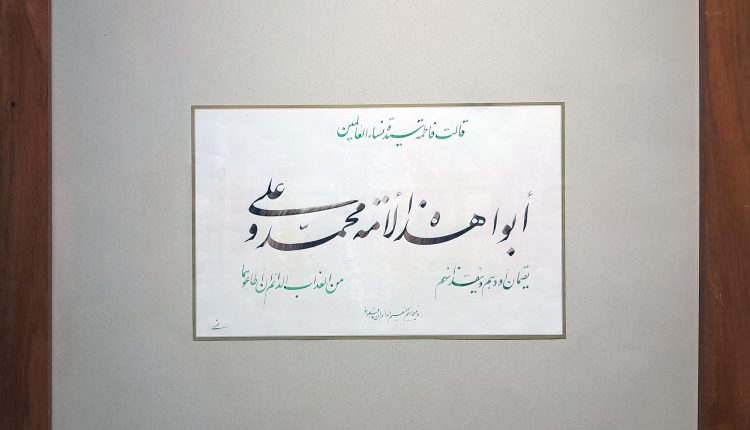 قالت فاطمة سيدة نساء العالمين
أبوا هذه الأمة محمد وعلي
يقيمان أودهم وينقذانهم من العذاب الدائم إن أطاعوهما